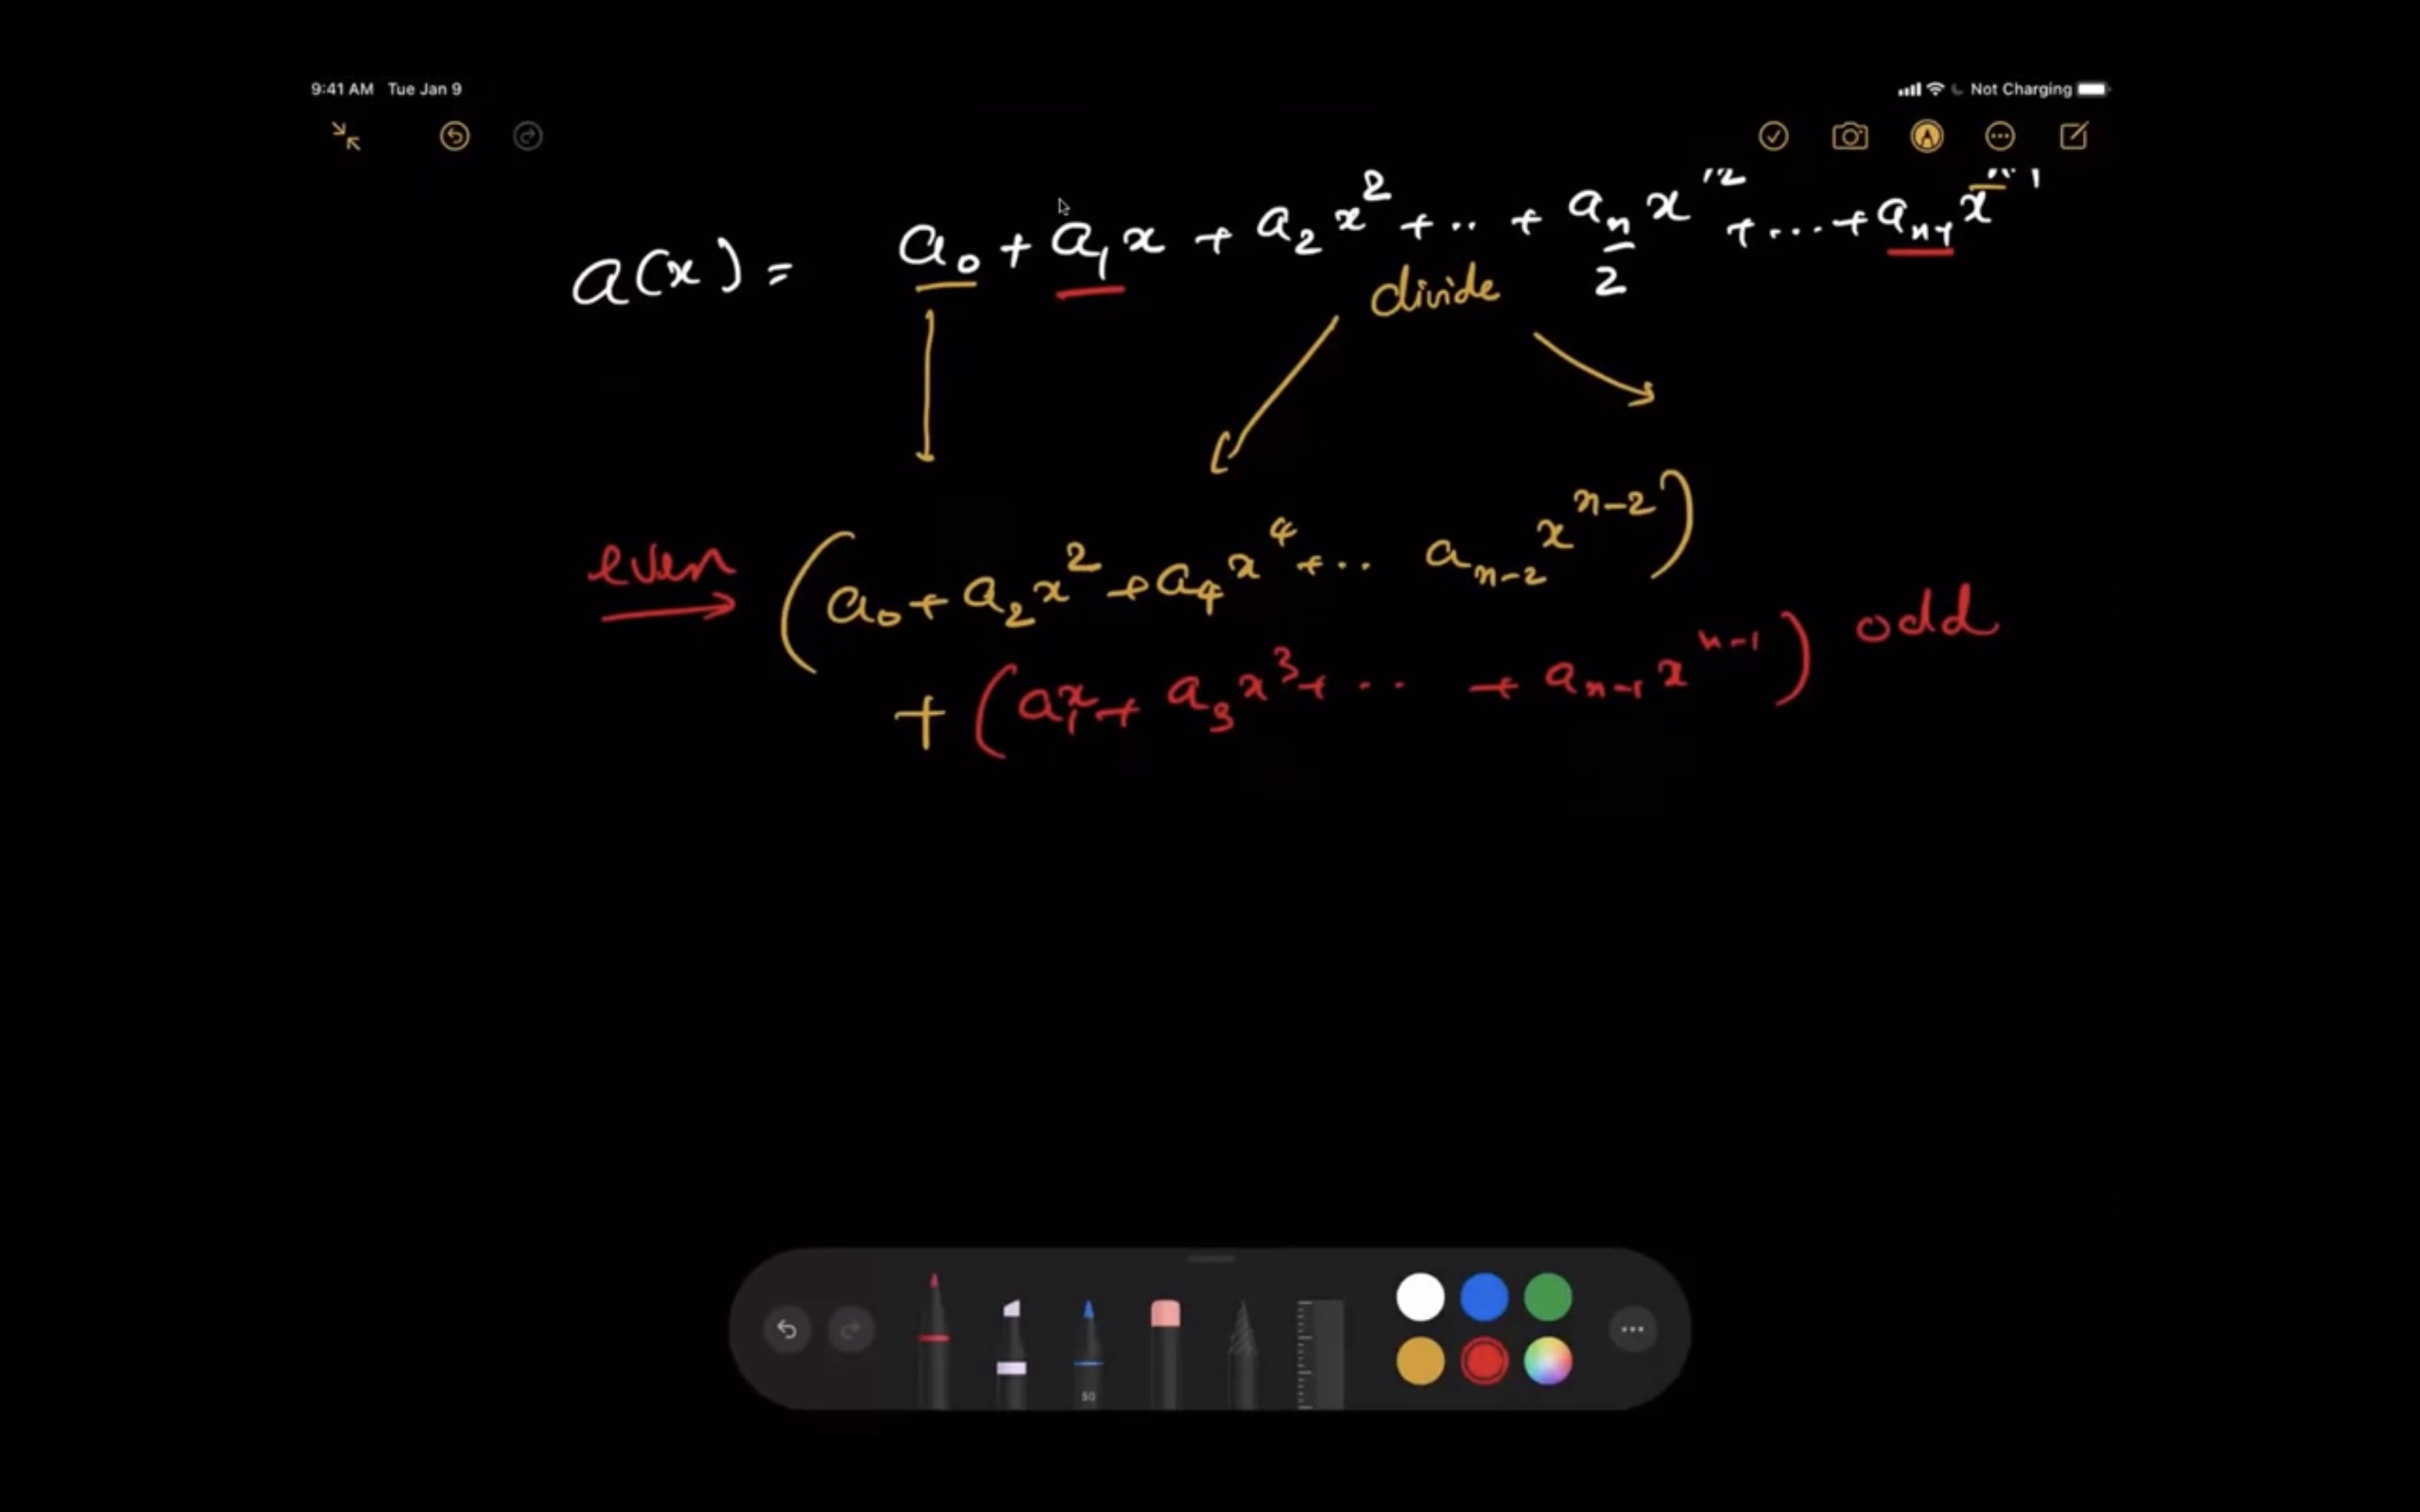 9:41 AM Tue Jan 9 Not Charging
a(x) = a₀ + a₁x + a₂x² + .. + a_{n/2} x^{n/2} + ... + a_{n-1} x^{n-1}
divide
even (a₀ + a₂x² + a₄x⁴ + .. a_{n-2} x^{n-2})
+ (a₁x + a₃x³ + .. + a_{n-1} x^{n-1}) odd
50